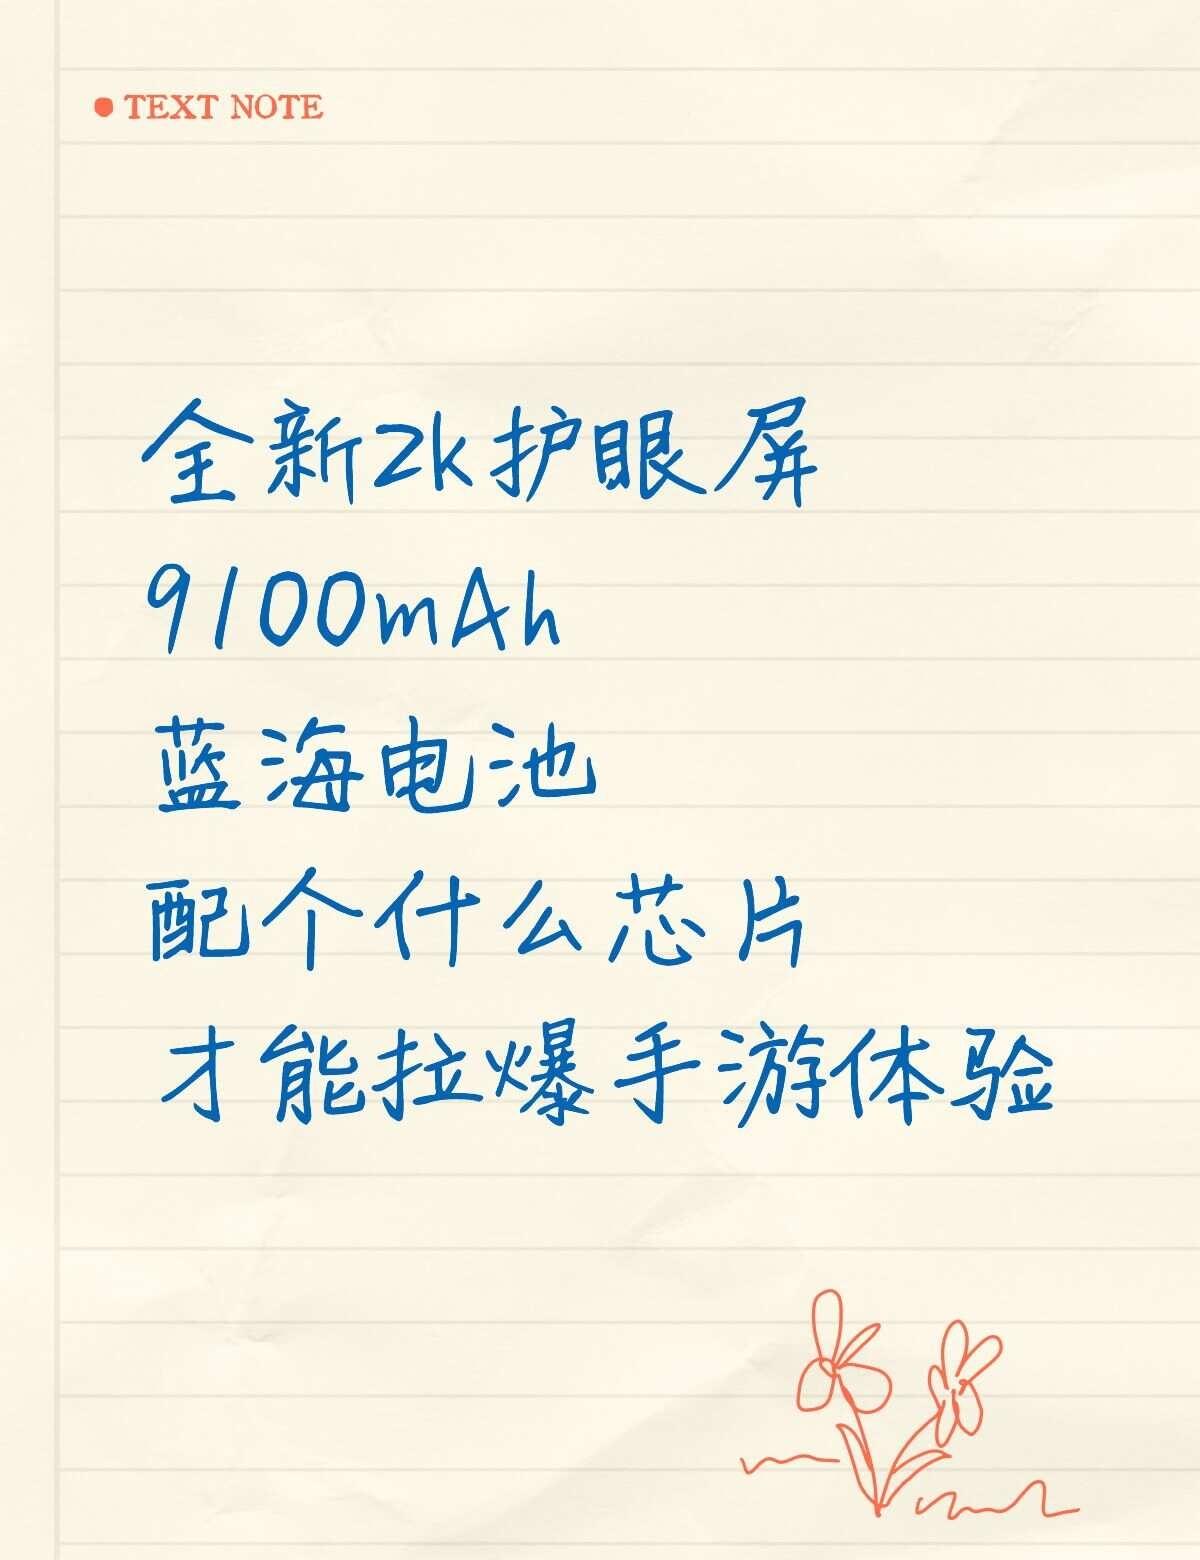 TEXT NOTE
全新2k护眼屏
9100mAh
蓝海电池
配个什么芯片
才能拉爆手游体验